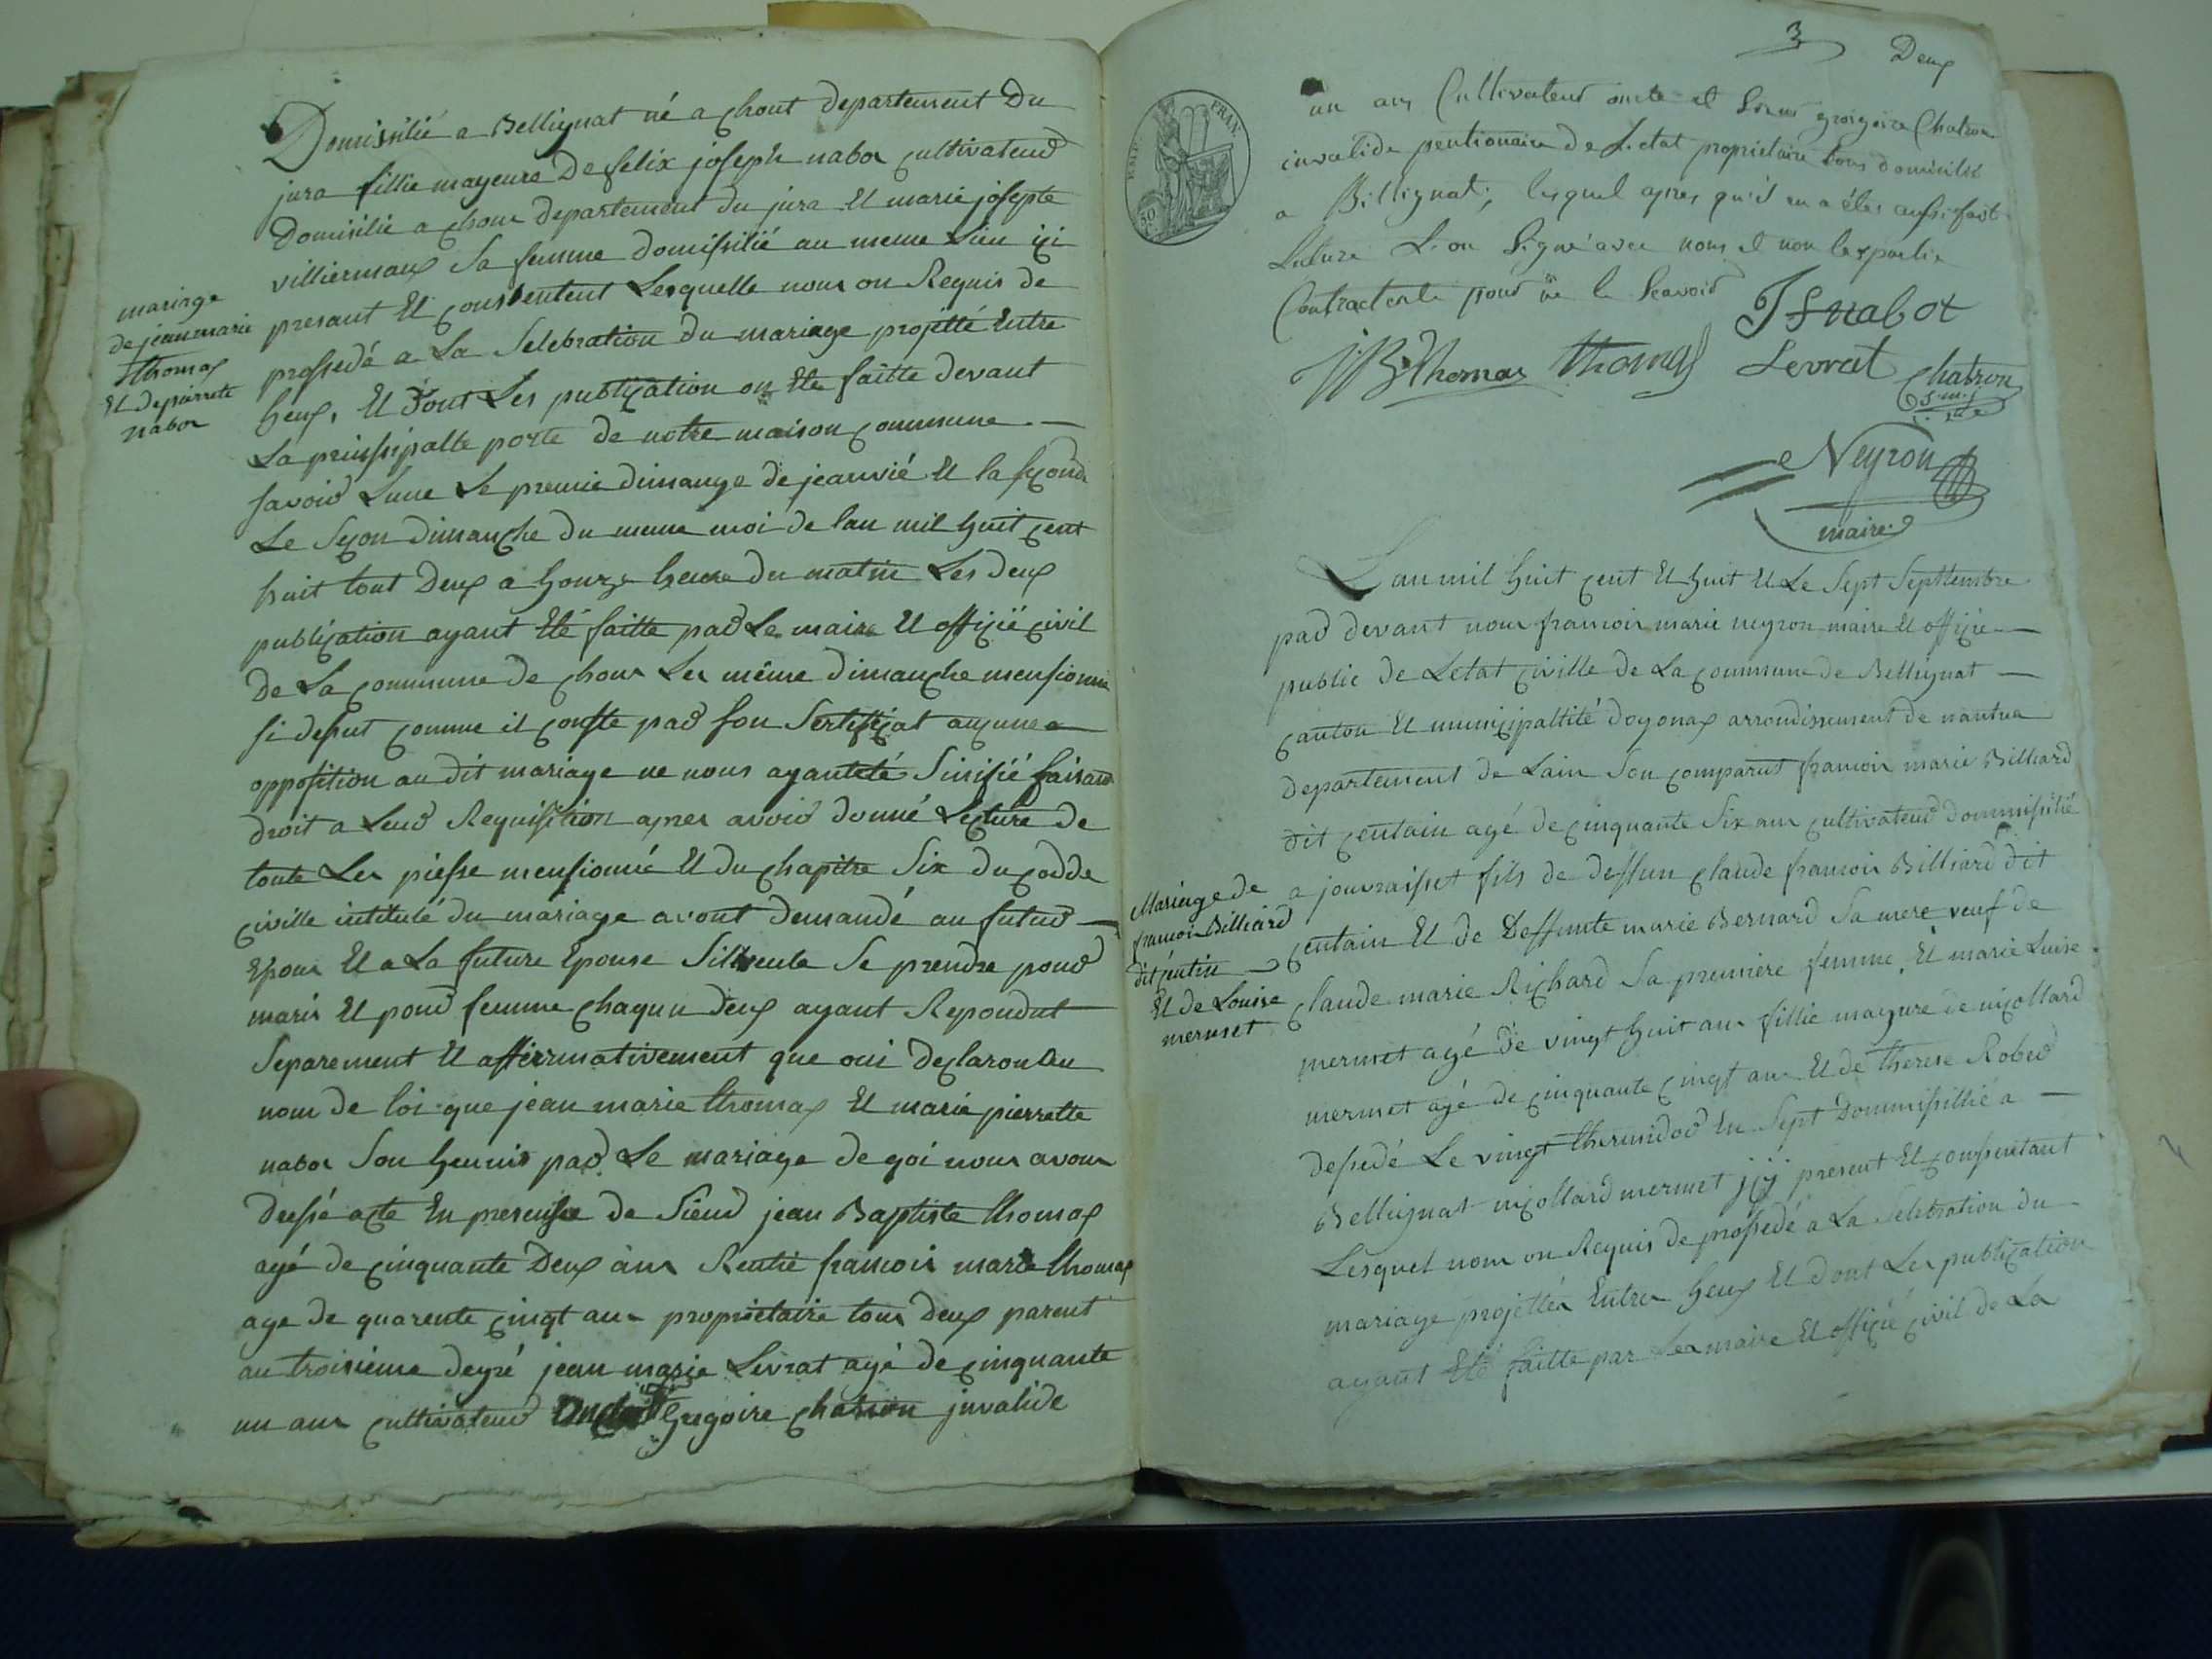 Domisilié a Bellignat né a chout departement Du
jura fillie mayeure De felix joseph nabot cultivateur
Domisilié a choux departement du jura Et marie josepte
villiermaux Sa femme domissilié au meme Lieu içi
presant Et consentent Lesquelle nous on Requis de
prossedé a La Selebration du mariage projetté Entre
heux, Et dont Les publiçation on Ete faitte devant
La prinssipalle porte de notre maison commune
savoir Lune Le premie dimange de jeanvié Et la seçonde
Le Seçon dimançhe du meme moi de lan mil huit çent
huit tout Deux a honze heure du matin Les deux
publiçation ayant Eté faitte par Le maire Et offiçié çivil
De La commune de choux Les même dimançhe mensionné
si desut comme il conste par son Sertifiçat auçune
oppossition au dit mariage ne nous ayanteté Sinifié faisant
droit a Leur Requisition apres avoir donné Leçture de
toute Les piesse mensionné Et du chapitre Six du codde
çiville intitulé du mariage avont demandé au futur
Epoux Et a La future Epouse Sill veule Se prendre pour
maris Et pour femme chaqun deux ayant Repondut
Separement Et affirmativement que oui declaron au
nom de loi que jean marie thomas Et marie pierrette
nabot Son heunis par Le mariage de qoi nous avons
dressé açte En presensse de Sieur jean Baptiste thomas
agé de çinquante Deux ans Rentié francois marie thomas
age de quarente çinqt ans proprietaire tous deux parent
au troisieme degré jean marie Levrat agé de çinquante
un ans cultivateur Gregoire chatron jnvalide
mariage
de jean marie
thomas
Et de pierrette
nabot
3
Deux
un ans Cultivateur oncle et Sieur groigoire Chatron
invalide pentionaire de L'etat proprietaire tous domicilié
a Billignat; lesquel apres qu'il en a étés aussi fait
Lecture L'on Signé avec nous et non les partie
Contractente pour ne le Scavoir
JFnabot
JB Thomas Thomas Levrat Chatron
Neyron
maire
Lan mil huit çent Et huit Et Le Sept Septtembre
par devant nous francois marie neyron maire Et offiçie
public de Letat çiville de La commune de Bellignat
canton Et muniçipallité doyonax arrondissement de nantua
departement de Lain Son comparut francois marie Billiard
dit çentain agé de çinquante Six ans cultivateur dommissilié
a jouvraisset fils de deffun claude francois Billiard dit
çentain Et de Deffunte marie Bernard Sa mere veuf de
claude marie Riçhard Sa premiere femme, Et marie Luise
mermet agé de vingt huit ans fillie mayure de niçollard
mermet agé de çinquante çinqt ans Et de therese Rober
dessedé Le vingt thermidor En Sept Dommissillié a
Bellignat niçollard mermet jçy present Et conssentant
Lesquel nous on Requis de prossedé a La Selebration du
mariage projettés Entre heux Et dont Les publiçation
ayant Eté faitte par Les maire Et offiçié çivil de La
Mariage de
francois Billiard
dit çentin
Et de Louise
mermet